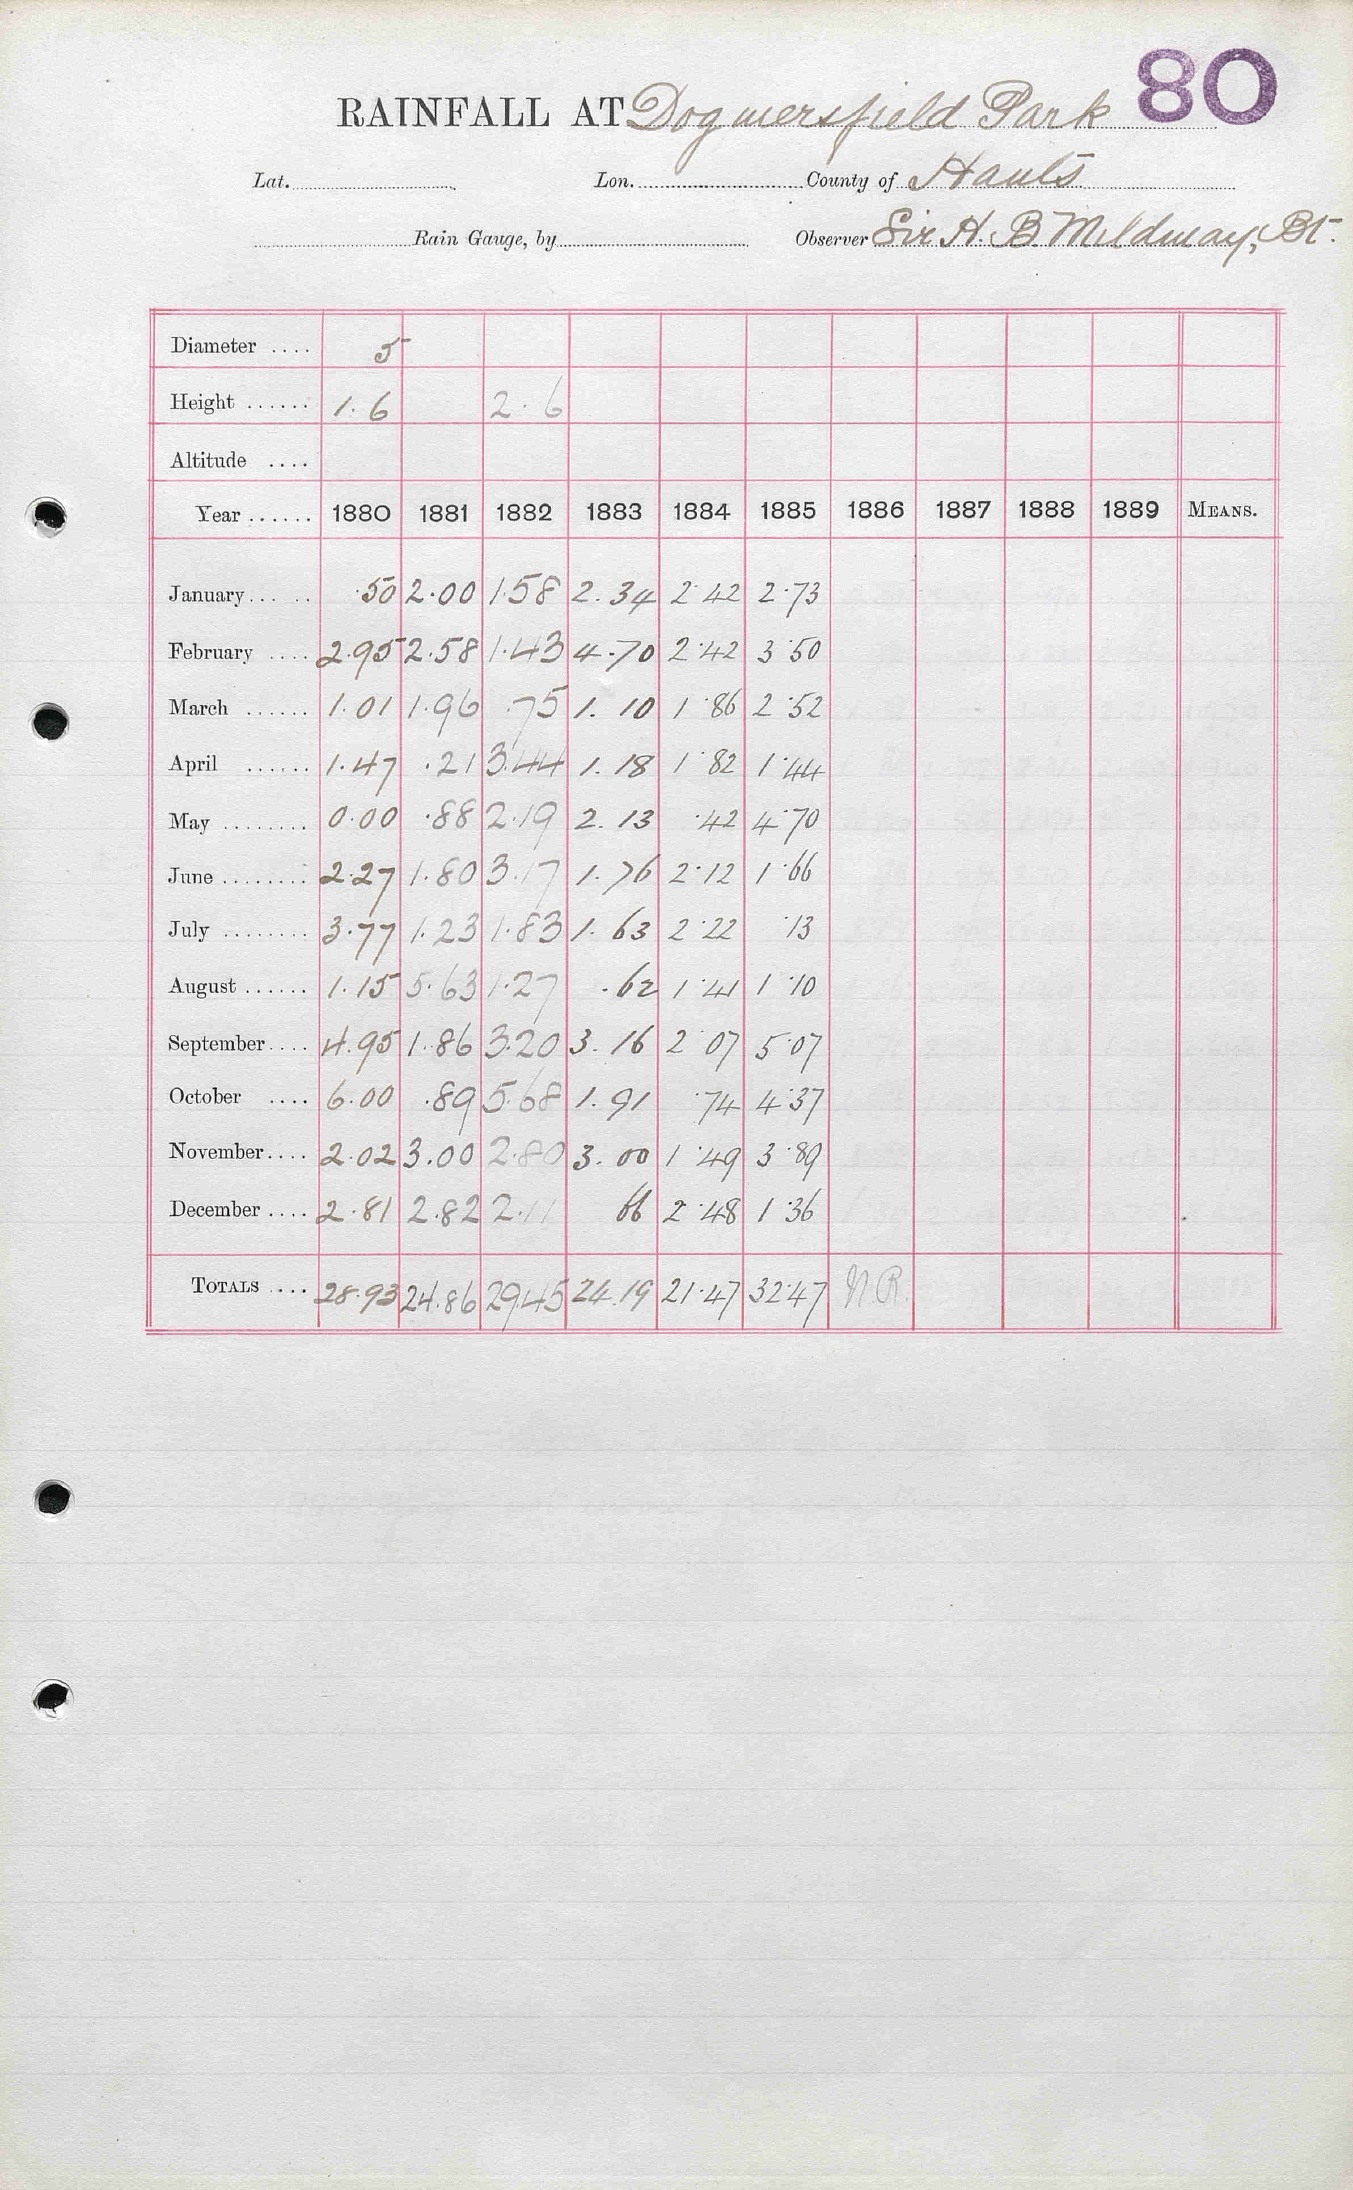 80
RAINFALL AT Dogmersfield Park
Lat. Lon. County of Hants
Rain Gauge, by Observer Sir H. B. Mildmay, Bt.
Diameter .... 5
Height ...... 1.6 2.6
Altitude ....
Year ...... 1880 1881 1882 1883 1884 1885 1886 1887 1888 1889 MEANS.
January ... .. .50 2.00 1.58 2.34 2.42 2.73
February .... 2.95 2.58 1.43 4.70 2.42 3.50
March ...... 1.01 1.96 .75 1.10 1.86 2.52
April ...... 1.47 .21 3.44 1.18 1.82 1.44
May ........ 0.00 .88 2.19 2.13 .42 4.70
June ........ 2.27 1.80 3.17 1.76 2.12 1.66
July ........ 3.77 1.23 1.83 1.63 2.22 .13
August ...... 1.15 5.63 1.27 .62 1.41 1.10
September .... 4.95 1.86 3.20 3.16 2.07 5.07
October .... 6.00 .89 5.68 1.91 .74 4.37
November .... 2.02 3.00 2.80 3.00 1.49 3.89
December .... 2.81 2.82 2.11 66 2.48 1.36
TOTALS .... 28.93 24.86 29.45 24.19 21.47 32.47 N.R.